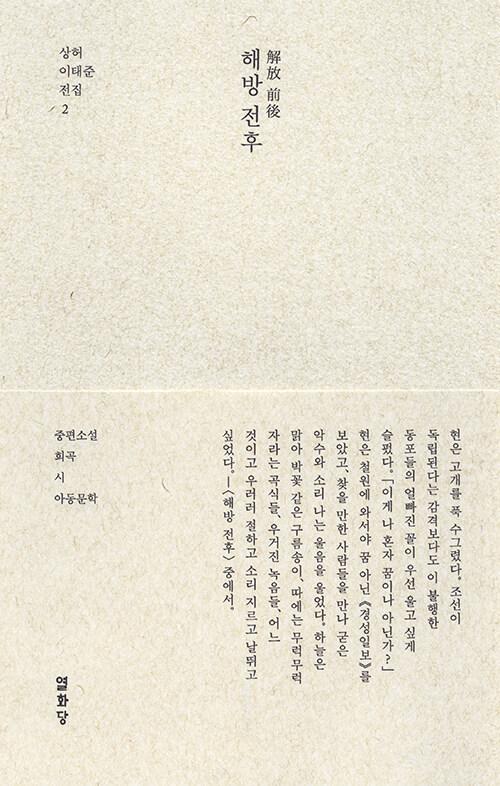 상허
이태준
전집
2
解放 前後
해방 전후
현은 고개를 푹 수그렸다. 조선이
독립된다는 감격보다도 이 불행한
동포들의 얼빠진 꼴이 우선 울고 싶게
슬펐다.「이게 나 혼자 꿈이나 아닌가?」
현은 철원에 와서야 꿈 아닌《경성일보》를
보았고, 찾을 만한 사람들을 만나 굳은
악수와 소리 나는 울음을 울었다. 하늘은
맑아 박꽃 같은 구름송이, 따에는 무럭무럭
자라는 곡식들, 우거진 녹음들, 어느
것이고 우러러 절하고 소리 지르고 날뛰고
싶었다.—〈해방 전후〉중에서.
중편소설
희곡
시
아동문학
열화당